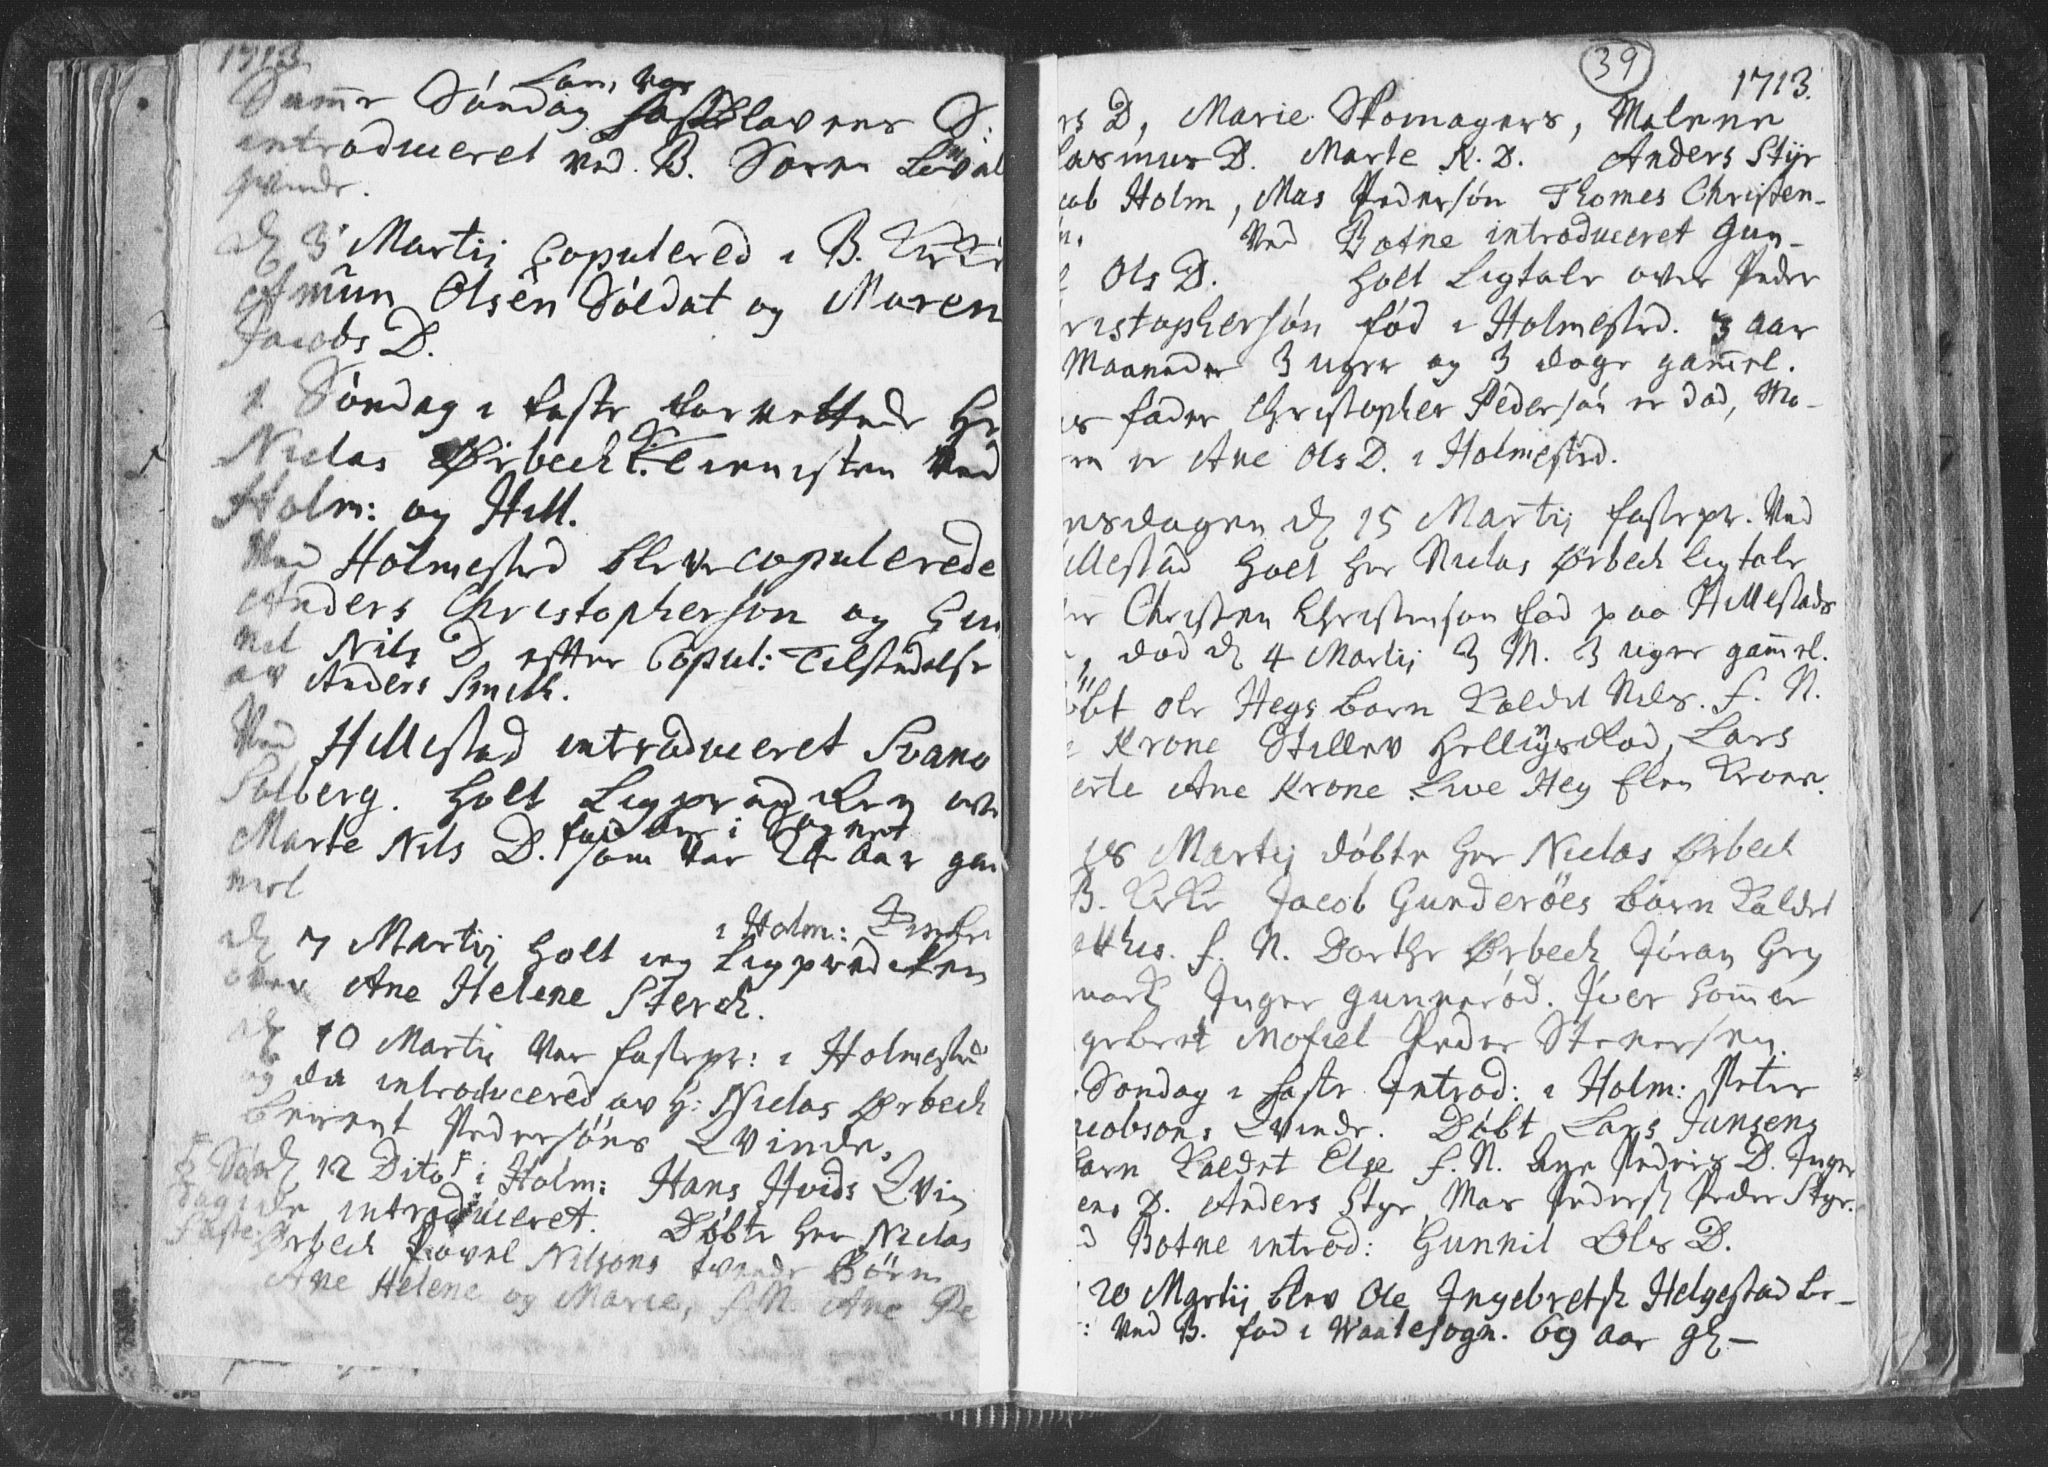 1713
Samme Søndag som var fastelavens S:
introduceret ved B. Soren
qvinde.
d 3 Martij Copulered i B. Kirke
Amun Olsen Soldat og Maren
Jacobs D.
1 Søndag i faste forrettede Hr
Niclas Ørbech Tienisten ved
Holm: og Hill.
Ved Holmestrd bleve copulerede
Anders Christophersøn og Gun
nel Nils D. efter Copul: Tilstedelse
av Anders Smith.
Ved Hillestad introduceret Svano
Solberg. holt Ligprædiken over
Marte Nils D. fød her i Sognet
som var 24 aar gam
mel
d 7 Martij holt jeg i Holm: Kirke Ligprediken
over Ane Helene Sterch.
d 10 Martij var fastepr: i Holmestrd
og da introducered av H: Niclas Ørbech
Berent Pedersøns Qvinde.
Søn d 12 Dito i Holm: Hans Hvids Qvin
dag de introduceret. Døbte Her Niclas
Faste Ørbech Povel Nilsøns tvende Børn
Ane Helene og Marie, f. N. Ane Pe
39
1713.
rs D, Marie Skomagers, Malene
Rasmus D. Marte N. D. Anders Styr
cob Holm, Mas Pedersøn Thomes Christen-
n. Ved Botne introduceret Gun-
Ols D. holt Ligtale over Peder
ristophersøn fød i Holmestrd. 3 aar
Maaneder 3 uger og 3 dage gammel.
s fader Christopher Pedersøn er død, Mo-
ren er Ane Ols D. i Holmestrd.
nsdagen d 15 Martij fastepr. Ved
illestad holt Her Niclas Ørbech ligtale
er Christen Christensøn fød paa Hillestads
, død d 4 Martij 3 M. 3 uger gammel.
øbt Ole Hegs barn Kaldet Nils. f. N.
Krone Stillev Helligsrød, Lars
erte Ane Krone Live Heg Elen Krone.
18 Martij døbte Her Niclas Ørbech
B. Kirke Jacob Gunderöes barn Kaldet
tthis. f. N. Dorthe Ørbech Jøran Grø
nark Inger Gunnerød. Iver Sommer
gebert Mofiel Peder Stenersen.
Søndag i faste Introd: i Holm: Peter
acobsøns Qvinde. Døbt Lars Jansens
barn Kaldet Else f. N. Ane Peders D. Inger
ens D. Anders Styr Mas Peders Peder Styr.
d Botne introd: Gunnil Ols D.
20 Martij blev Ole Ingebrets Helgestad be-
: ved B. fød i Waale sogn. 69 aar gl-